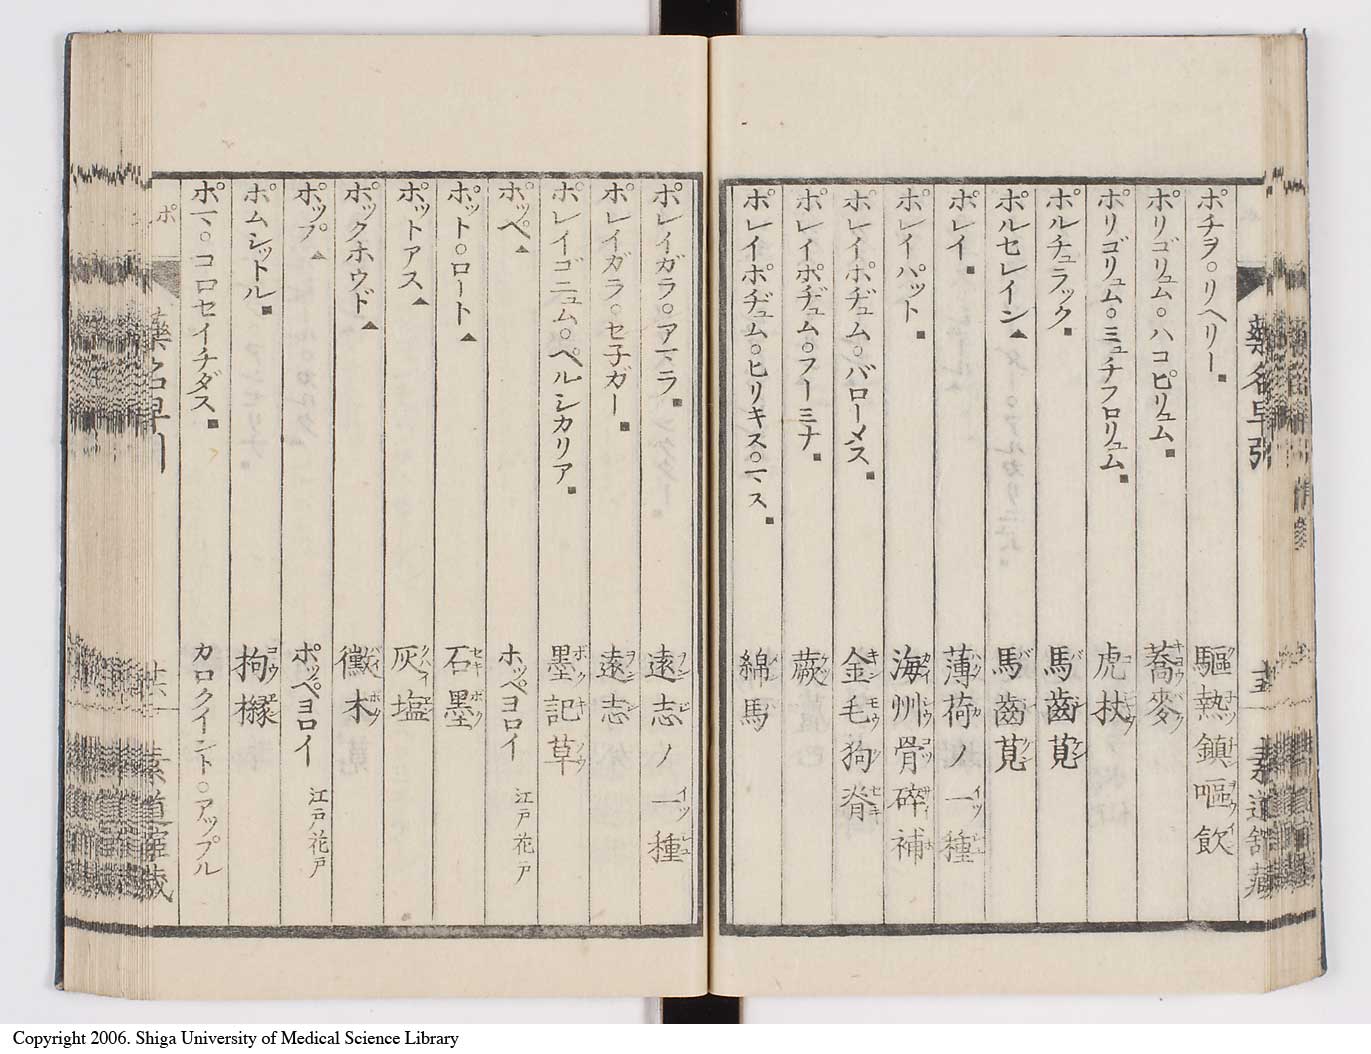 ポチヲ○リヘリー■ 驅熱鎮嘔飲
ポリゴリュム○ハコピリュム■ 蕎麥
ポリゴリュム○ミュチフロリュム■ 虎杖
ポルチュラック■ 馬齒莧
ポルセレイン▲ 馬齒莧
ポレイ■ 薄荷ノ一種
ポレイパット■ 海州骨碎補
ポレイポヂュム○バローメス■ 金毛狗脊
ポレイポヂュム○フーミナ■ 蕨
ポレイポヂュム○ヒリキス○マス■ 綿馬
藥名早引
ポレイガラ○アマラ■ 遠志ノ一種
ポレイガラ○セ子ガー■ 遠志
ポレイゴニュム○ペルシカリア■ 墨記草
ポッペ▲ ホッペヨロイ 江戸花戸
ポット○ロート▲ 石墨
ポットアス▲ 灰塩
ポックホウド▲ 黴木
ポップ▲ ポッペヨロイ 江戸花戸
ポムシットル■ 拘櫞
ポマ○コロセイチダス■ カロクイント○アップル
ポ
Copyright 2006. Shiga University of Medical Science Library